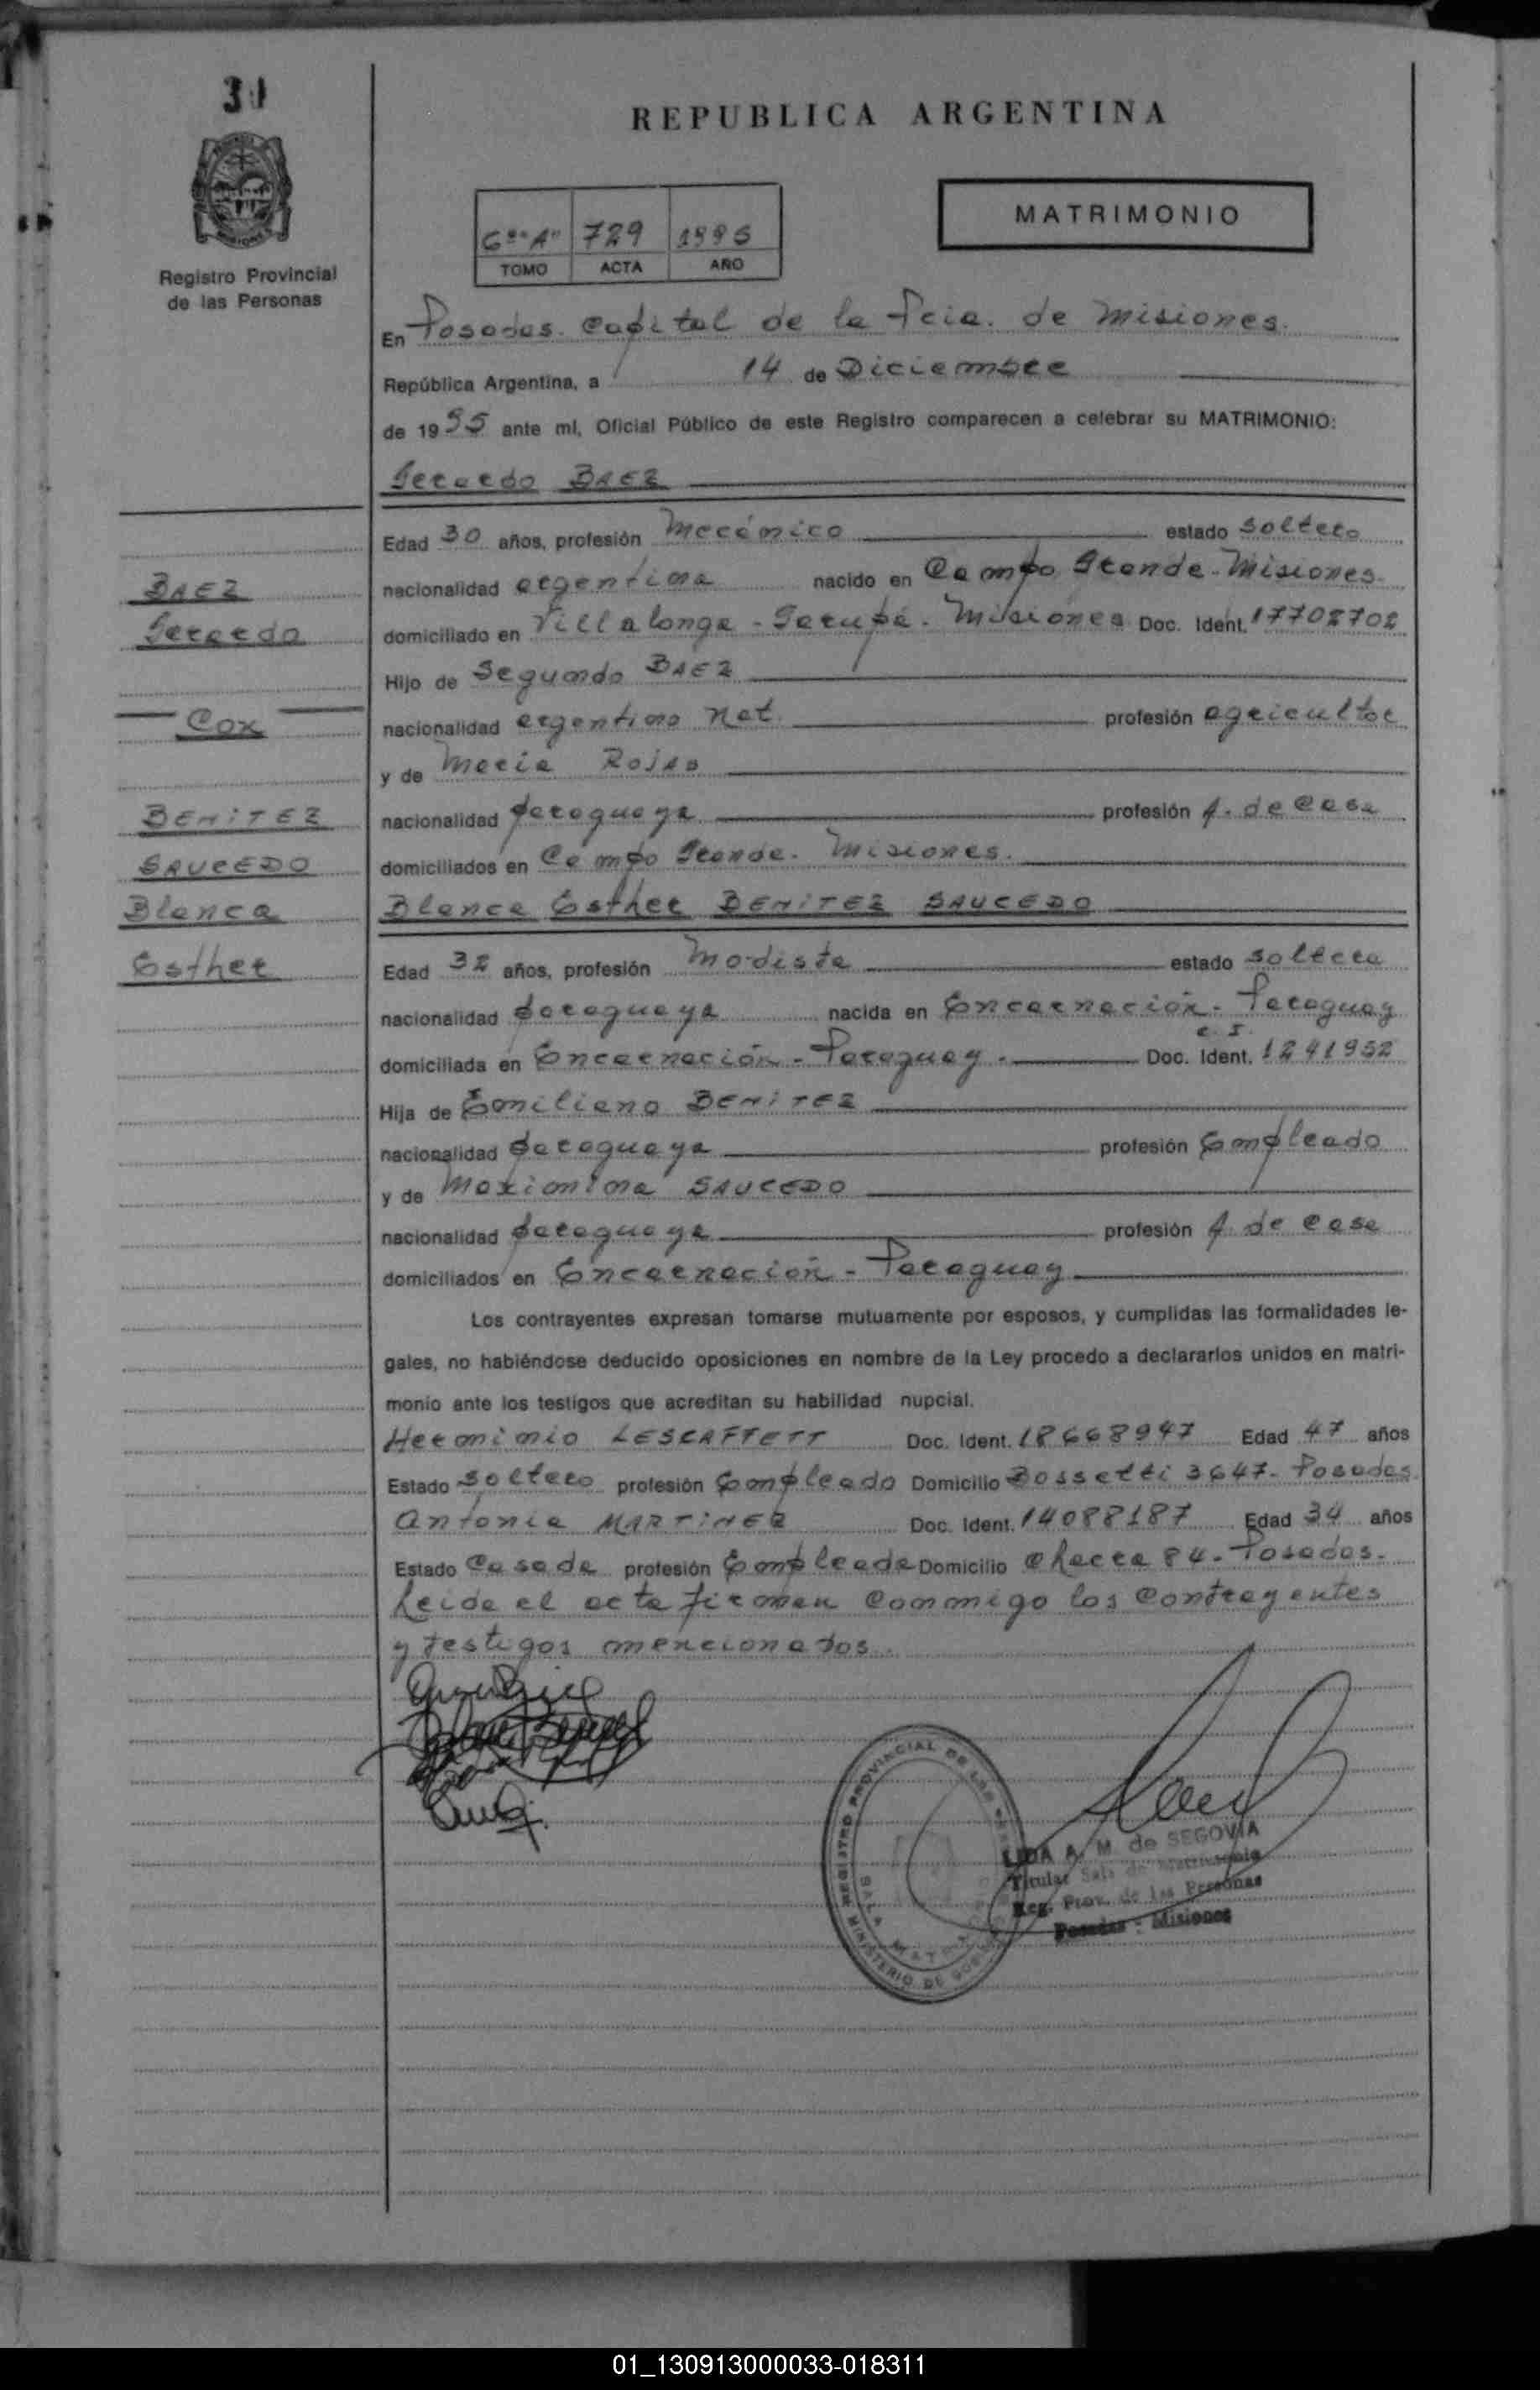 31
REPUBLICA ARGENTINA
Registro Provincial
de las Personas
6º "A" 729 1995
TOMO ACTA AÑO
MATRIMONIO
En Posadas. Capital de la Pcia. de Misiones.
República Argentina, a 14 de Diciembre
de 1995 ante mí, Oficial Público de este Registro comparecen a celebrar su MATRIMONIO:
Gerardo BAEZ
Edad 30 años, profesión Mecánico estado soltero
nacionalidad argentina nacido en Campo Grande. Misiones.
domiciliado en Villalonga - Garupá. Misiones Doc. Ident. 17702702
Hijo de Segundo BAEZ
nacionalidad argentino nat. profesión agricultor
y de Maria ROJAS
nacionalidad paraguaya profesión A. de Casa
domiciliados en Campo Grande. Misiones.
Blanca Esther BENITEZ SAUCEDO
Edad 32 años, profesión Modista estado soltera
nacionalidad paraguaya nacida en Encarnación. Paraguay
domiciliada en Encarnación - Paraguay. Doc. Ident. C. I. 1241952
Hija de Emiliano BENITEZ
nacionalidad paraguaya profesión Empleado
y de Maximina SAUCEDO
nacionalidad paraguaya profesión A. de casa
domiciliados en Encarnación - Paraguay
Los contrayentes expresan tomarse mutuamente por esposos, y cumplidas las formalidades le-
gales, no habiéndose deducido oposiciones en nombre de la Ley procedo a declararlos unidos en matri-
monio ante los testigos que acreditan su habilidad nupcial.
Herminio LESCAFFETT Doc. Ident. 18668947 Edad 47 años
Estado soltero profesión Empleado Domicilio Bossetti 3647. Posadas
Antonia MARTINEZ Doc. Ident. 14088187 Edad 34 años
Estado Casada profesión Empleada Domicilio Chacra 84. Posadas.
Leida el acta firman conmigo los contrayentes
y testigos mencionados.
BAEZ
Gerardo
Con
BENITEZ
SAUCEDO
Blanca
Esther
REGISTRO PROVINCIAL DE LAS
SALA
MINISTERIO DE
LIDA A. M. de SEGOVIA
Titular Sala de Matrimonio
Reg. Prov. de las Personas
Posadas - Misiones
01_130913000033-018311